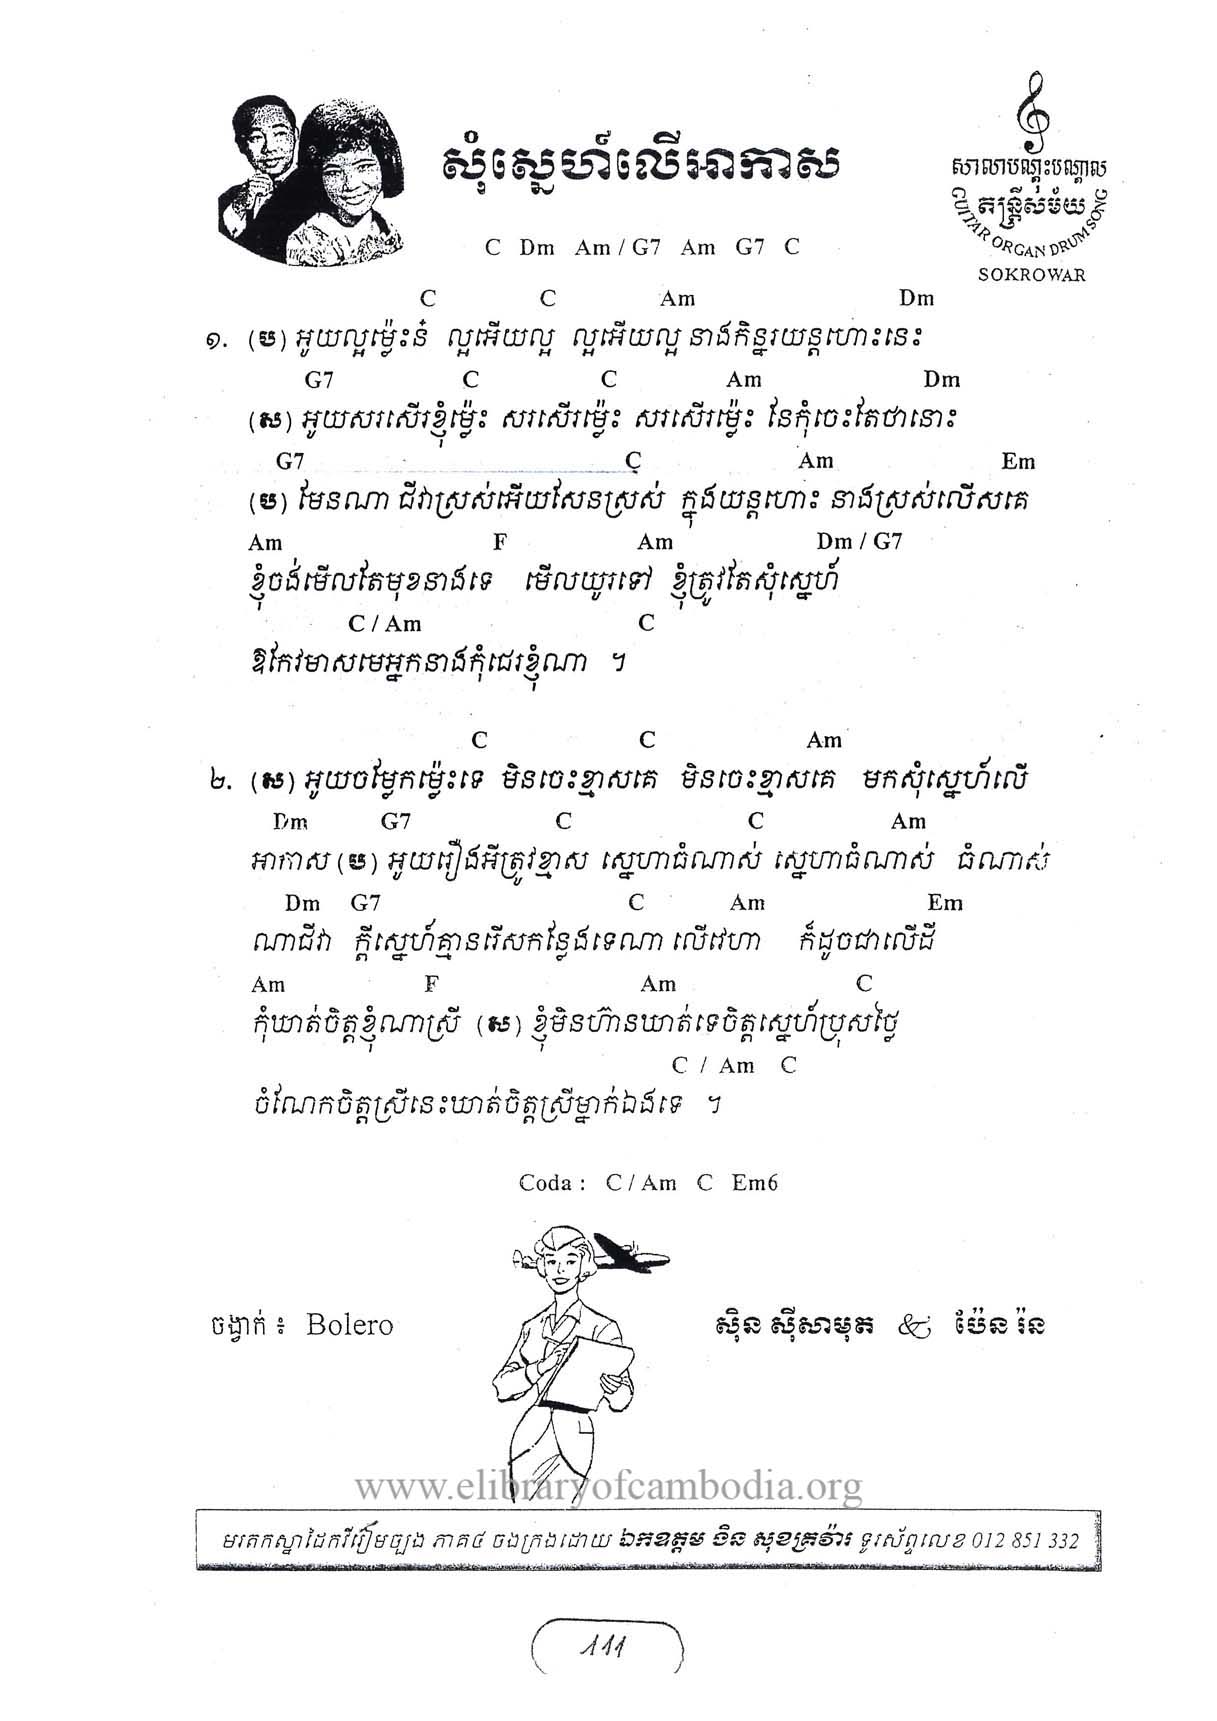 សុំស្នេហ៍លើអាកាស
សាលាបណ្តុះបណ្តាល
តន្ត្រីសម័យ
GUITAR ORGAN DRUM SONG
SOKROWAR
C Dm Am / G7 Am G7 C
C C Am Dm
១. (ប) អូយល្អម្ល៉េះន៎ ល្អអើយល្អ ល្អអើយល្អ នាងកិន្នរយន្តហោះនេះ
G7 C C Am Dm
(ស) អូយសរសើរខ្ញុំម្ល៉េះ សរសើរម្ល៉េះ សរសើរម្ល៉េះ នែកុំចេះតែថានោះ
G7 C Am Em
(ប) មែនណា ជីវាស្រស់អើយសែនស្រស់ ក្នុងយន្តហោះ នាងស្រស់លើសគេ
Am F Am Dm / G7
ខ្ញុំចង់មើលតែមុខនាងទេ មើលយូរទៅ ខ្ញុំត្រូវតែសុំស្នេហ៍
C / Am C
ឱកែវមាសមេអ្នកនាងកុំជេរខ្ញុំណា ។
C C Am
២. (ស) អូយចម្លែកម្ល៉េះទេ មិនចេះខ្មាសគេ មិនចេះខ្មាសគេ មកសុំស្នេហ៍លើ
Dm G7 C C Am
អាកាស (ប) អូយរឿងអីត្រូវខ្មាស ស្នេហាធំណាស់ ស្នេហាធំណាស់ ធំណាស់
Dm G7 C Am Em
ណាជីវា ក្តីស្នេហ៍គ្មានរើសកន្លែងទេណា លើវេហា ក៏ដូចជាលើដី
Am F Am C
កុំឃាត់ចិត្តខ្ញុំណាស្រី (ស) ខ្ញុំមិនហ៊ានឃាត់ទេចិត្តស្នេហ៍ប្រុសថ្លៃ
C / Am C
ចំណែកចិត្តស្រីនេះឃាត់ចិត្តស្រីម្នាក់ឯងទេ ។
Coda : C / Am C Em6
ចង្វាក់ ៖ Bolero
ស៊ិន ស៊ីសាមុត & ប៉ែន រ៉ន
www.elibraryofcambodia.org
មរតកស្នាដៃកវីរៀមច្បង ភាគ៤ ចងក្រងដោយ ឯកឧត្តម ងិន សុខគ្រវ៉ារ ទូរស័ព្ទលេខ 012 851 332
111